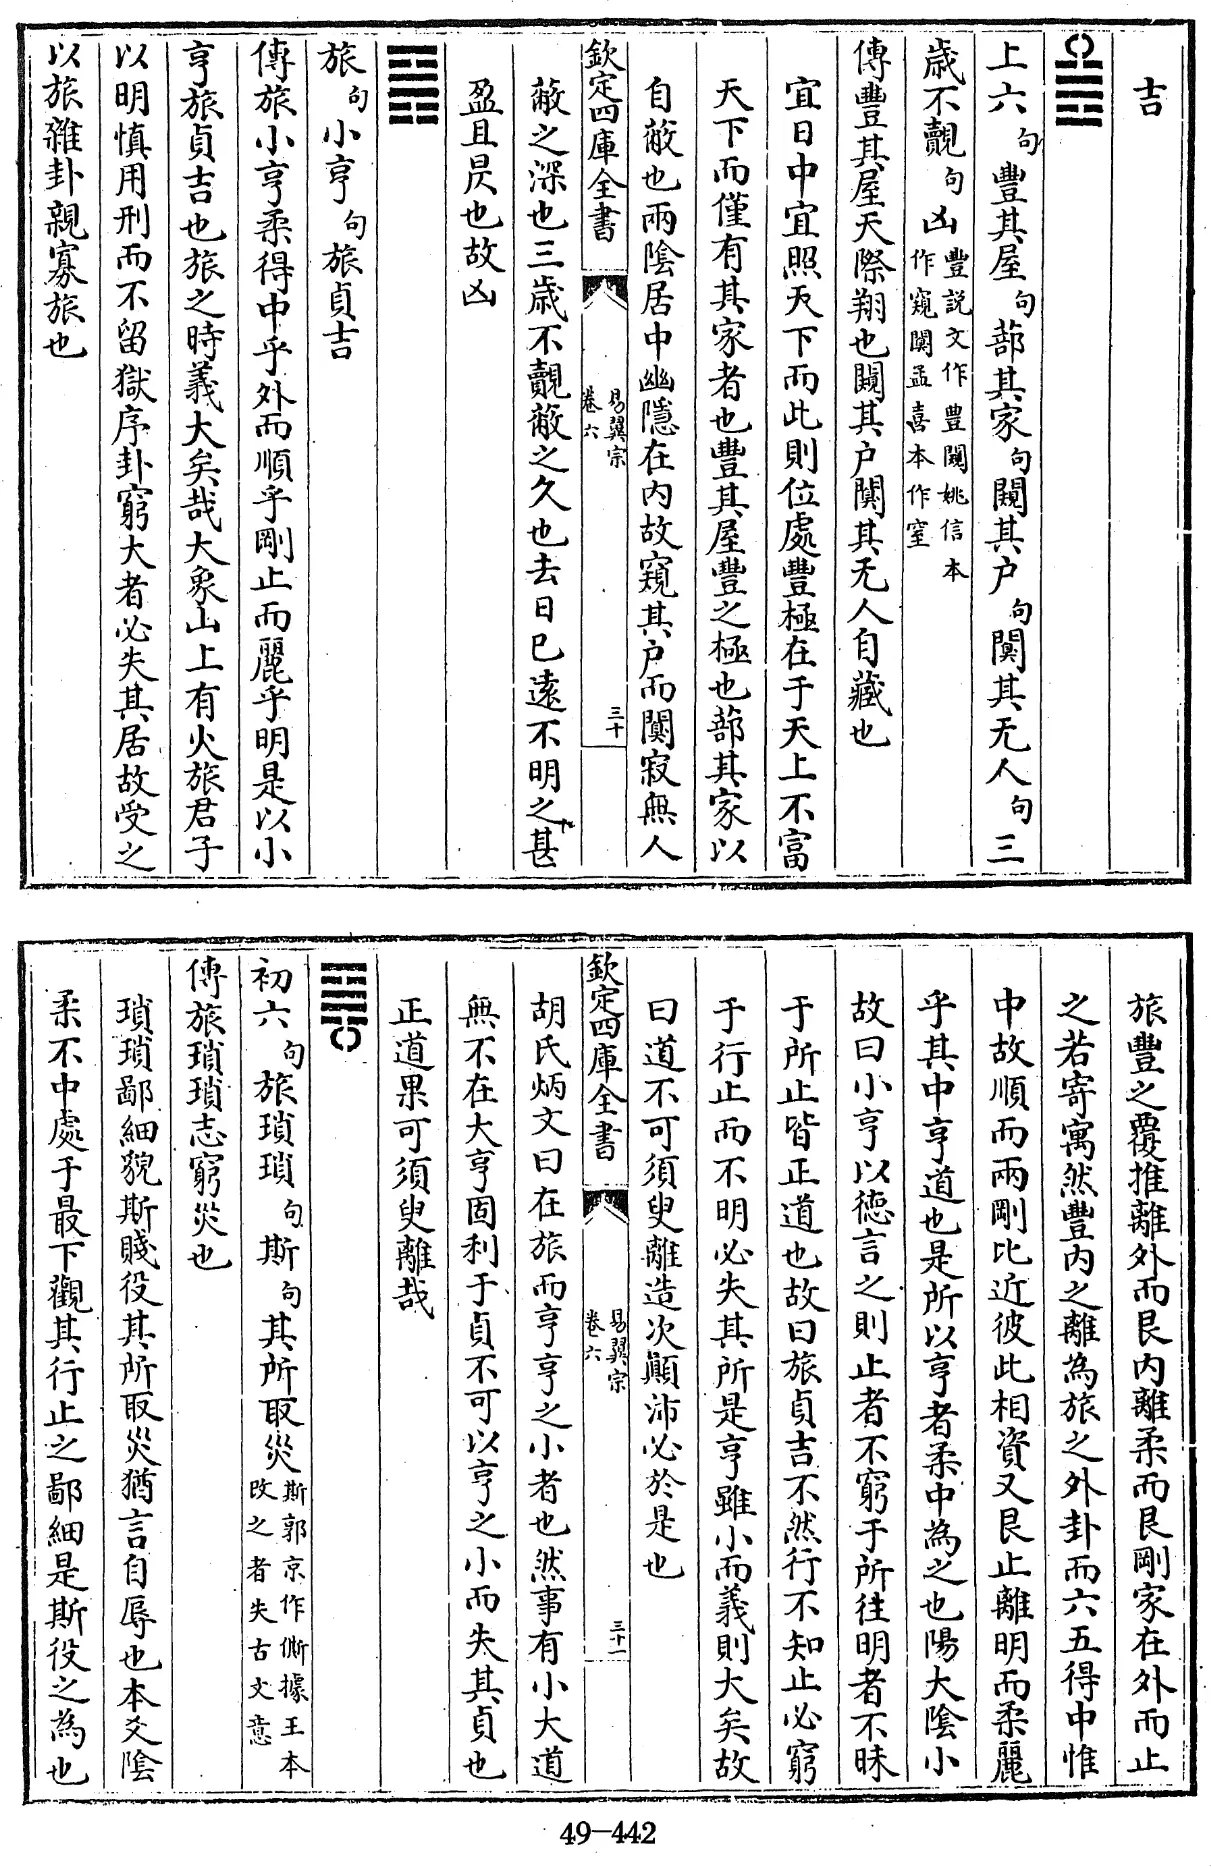 吉
上六句豐其屋句蔀其家句闚其户句闃其无人句三
歲不覿句凶豐説文作豐闚姚信本
作窺闃孟喜本作窒
傳豐其屋天際翔也闚其户闃其无人自藏也
宜日中宜照天下而此則位處豐極在于天上不富
天下而僅有其家者也豐其屋豐之極也蔀其家以
自蔽也兩陰居中幽隱在内故窺其户而闃寂無人
欽定四庫全書
易翼宗
卷六
三十
蔽之深也三歲不覿蔽之久也去日已遠不明之甚
盈且昃也故凶
旅句小亨句旅貞吉
傳旅小亨柔得中乎外而順乎剛止而麗乎明是以小
亨旅貞吉也旅之時義大矣哉大象山上有火旅君子
以明慎用刑而不留獄序卦窮大者必失其居故受之
以旅雜卦親寡旅也
旅豐之覆推離外而艮内離柔而艮剛家在外而止
之若寄寓然豐内之離為旅之外卦而六五得中惟
中故順而兩剛比近彼此相資又艮止離明而柔麗
乎其中亨道也是所以亨者柔中為之也陽大陰小
故曰小亨以德言之則止者不窮于所往明者不昧
于所止皆正道也故曰旅貞吉不然行不知止必窮
于行止而不明必失其所是亨雖小而義則大矣故
曰道不可須臾離造次顛沛必於是也
欽定四庫全書
易翼宗
卷六
三十一
胡氏炳文曰在旅而亨亨之小者也然事有小大道
無不在大亨固利于貞不可以亨之小而失其貞也
正道果可須臾離哉
初六句旅瑣瑣句斯句其所取災斯郭京作㒋據王本
改之者失古文意
傳旅瑣瑣志窮災也
瑣瑣鄙細貌斯賤役其所取災猶言自辱也本爻陰
柔不中處于最下觀其行止之鄙細是斯役之為也
49-442